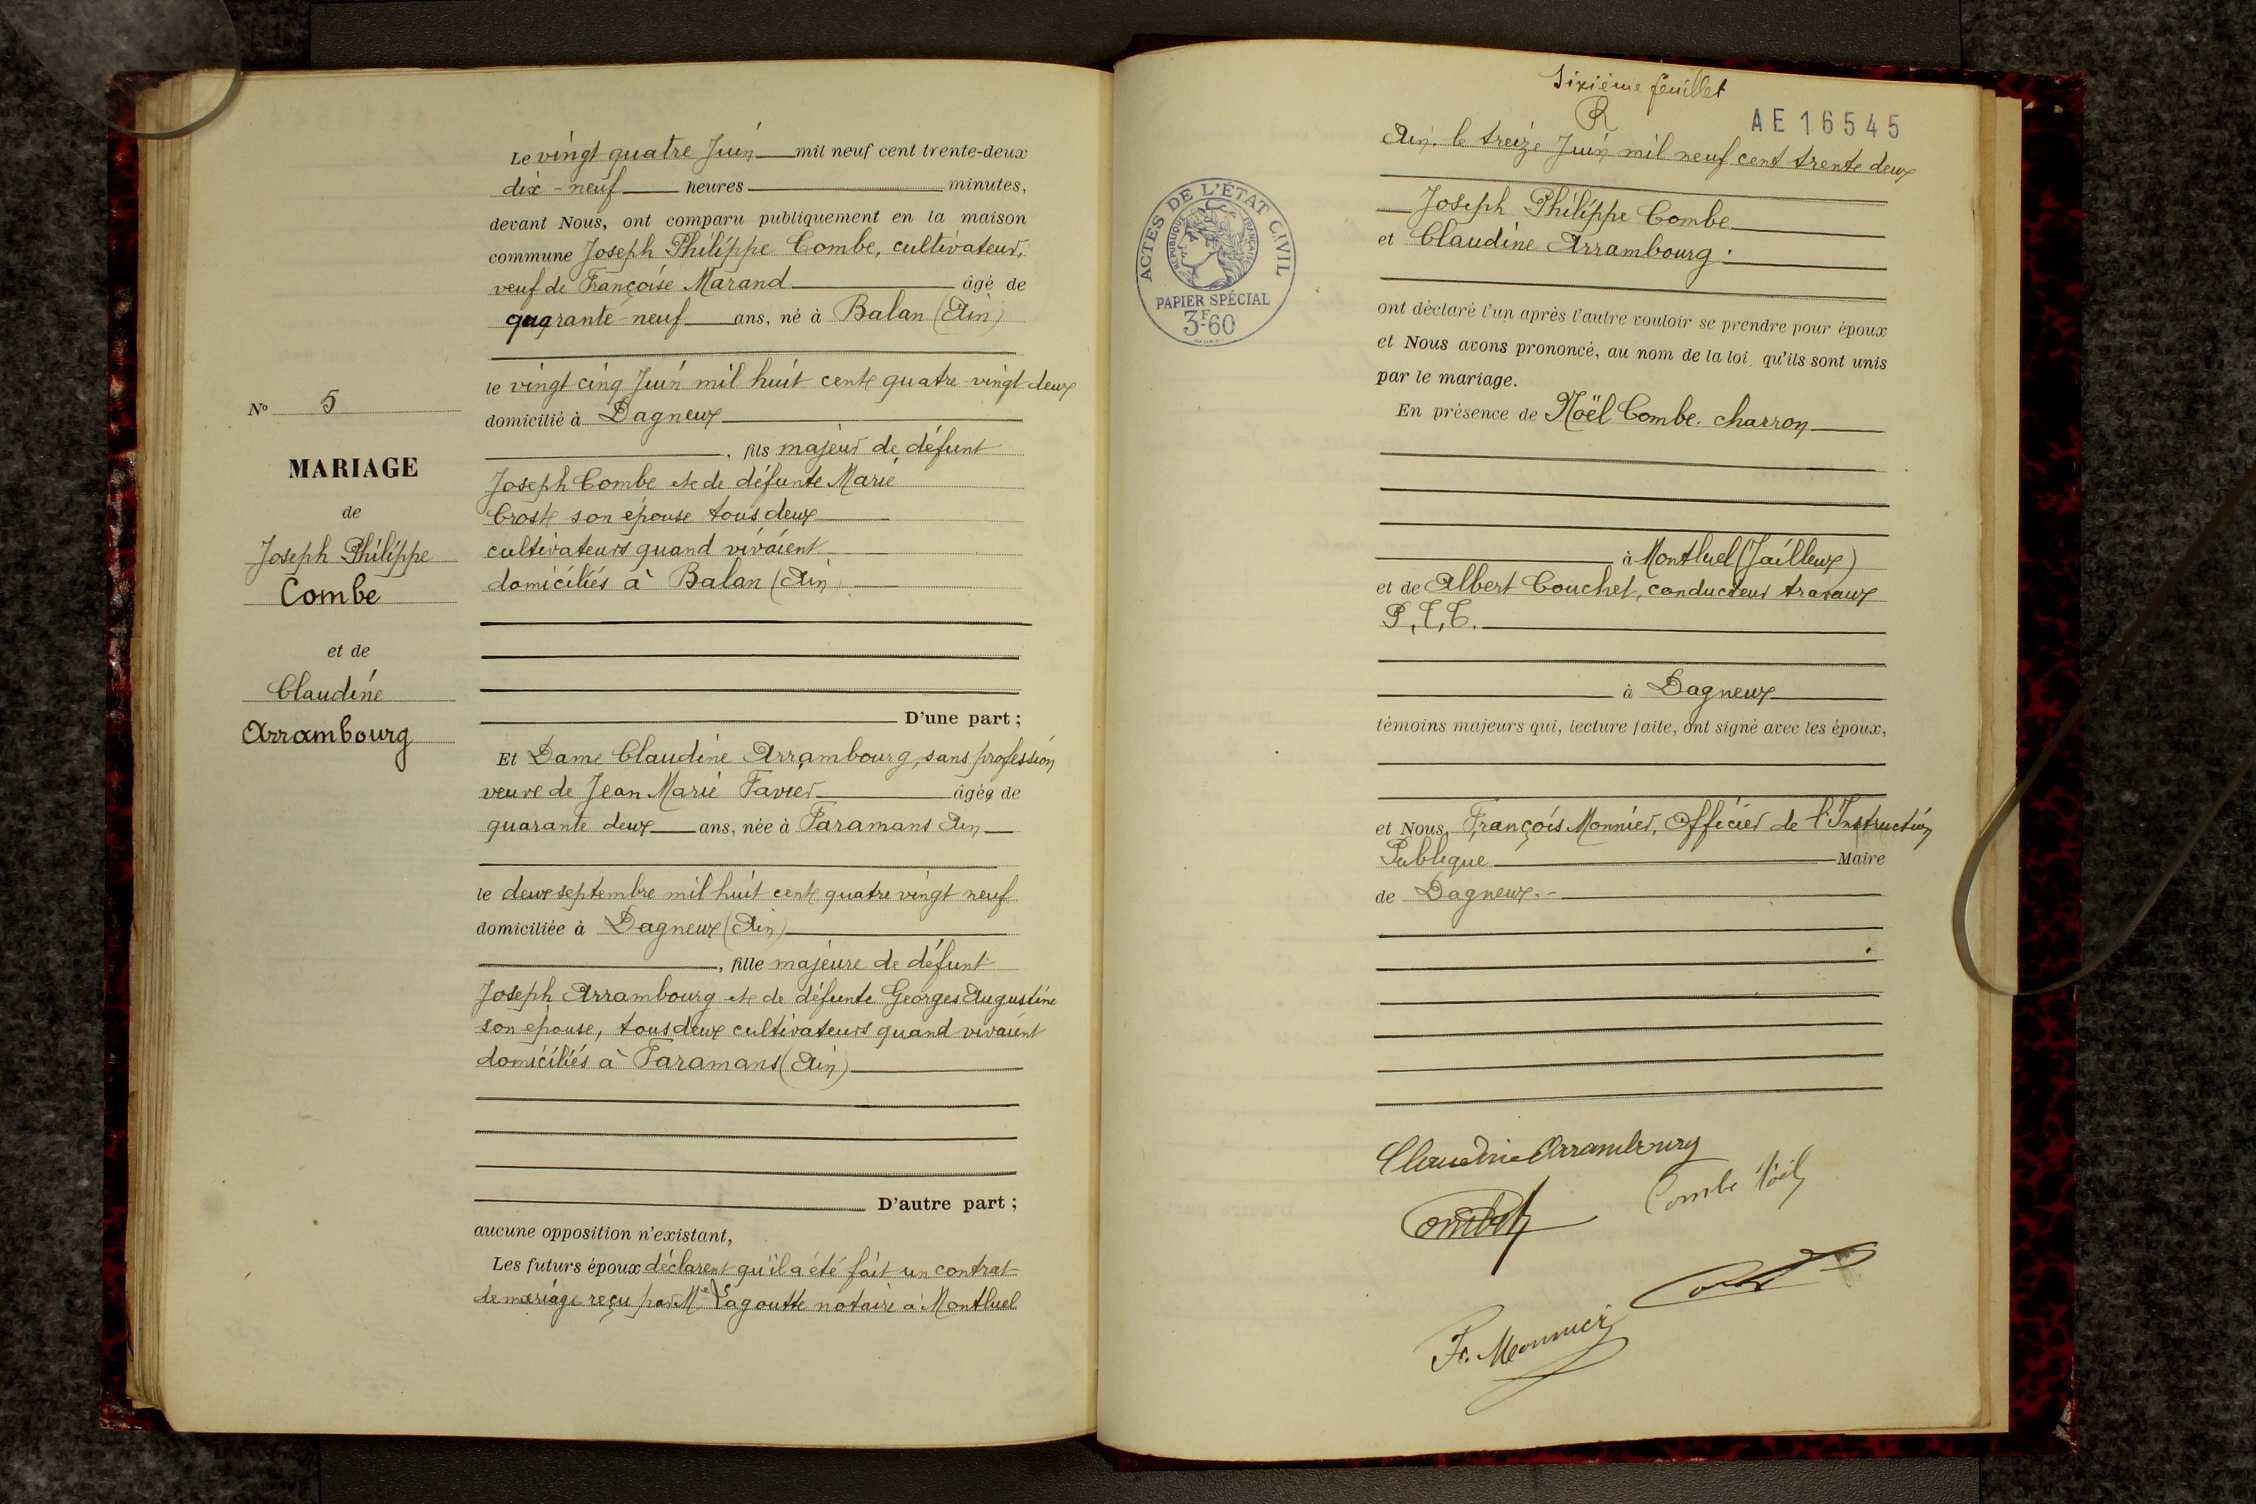 Le vingt quatre Juin mil neuf cent trente-deux
dix-neuf heures minutes,
devant Nous, ont comparu publiquement en la maison
commune Joseph Philippe Combe, cultivateur,
veuf de Françoise Marand âgé de
quarante-neuf ans, né à Balan (Ain)
le vingt cinq Juin mil huit cent quatre-vingt-deux
domicilié à Dagneux
, fils majeur de défunt
Joseph Combe et de défunte Marie
Croste son épouse tous deux
cultivateurs quand vivaient
domiciliés à Balan (Ain)
D'une part ;
Et Dame Claudine Arrambourg, sans profession
veuve de Jean Marie Favier âgée de
quarante deux ans, née à Faramans Ain
le deux septembre mil huit cent quatre vingt neuf
domiciliée à Dagneux (Ain)
, fille majeure de défunt
Joseph Arrambourg et de défunte Georges Augustine
son épouse, tous deux cultivateurs quand vivaient
domiciliés à Faramans (Ain)
D'autre part ;
aucune opposition n'existant,
Les futurs époux déclarent qu'il a été fait un contrat
de mariage reçu par Me Lagoutte notaire à Montluel
No 5
MARIAGE
de
Joseph Philippe
Combe
et de
Claudine
Arrambourg
Sixième feuillet
R
AE 16545
Ain. le treize Juin mil neuf cent trente deux
Joseph Philippe Combe
et Claudine Arrambourg.
ont déclaré l'un après l'autre vouloir se prendre pour époux
et Nous avons prononcé, au nom de la loi, qu'ils sont unis
par le mariage.
En présence de Noël Combe. charron
à Montluel (Jailleux)
et de Albert Couchet, conducteur travaux
P,T,T.
à Dagneux
témoins majeurs qui, lecture faite, ont signé avec les époux,
et Nous, François Monnier, Officier de l'Instruction
Publique Maire
de Dagneux.-
ACTES DE L'ÉTAT CIVIL
RÉPUBLIQUE FRANÇAISE
PAPIER SPÉCIAL
3F60
Claudine Arrambourg
Combe Noël
F. Monnier